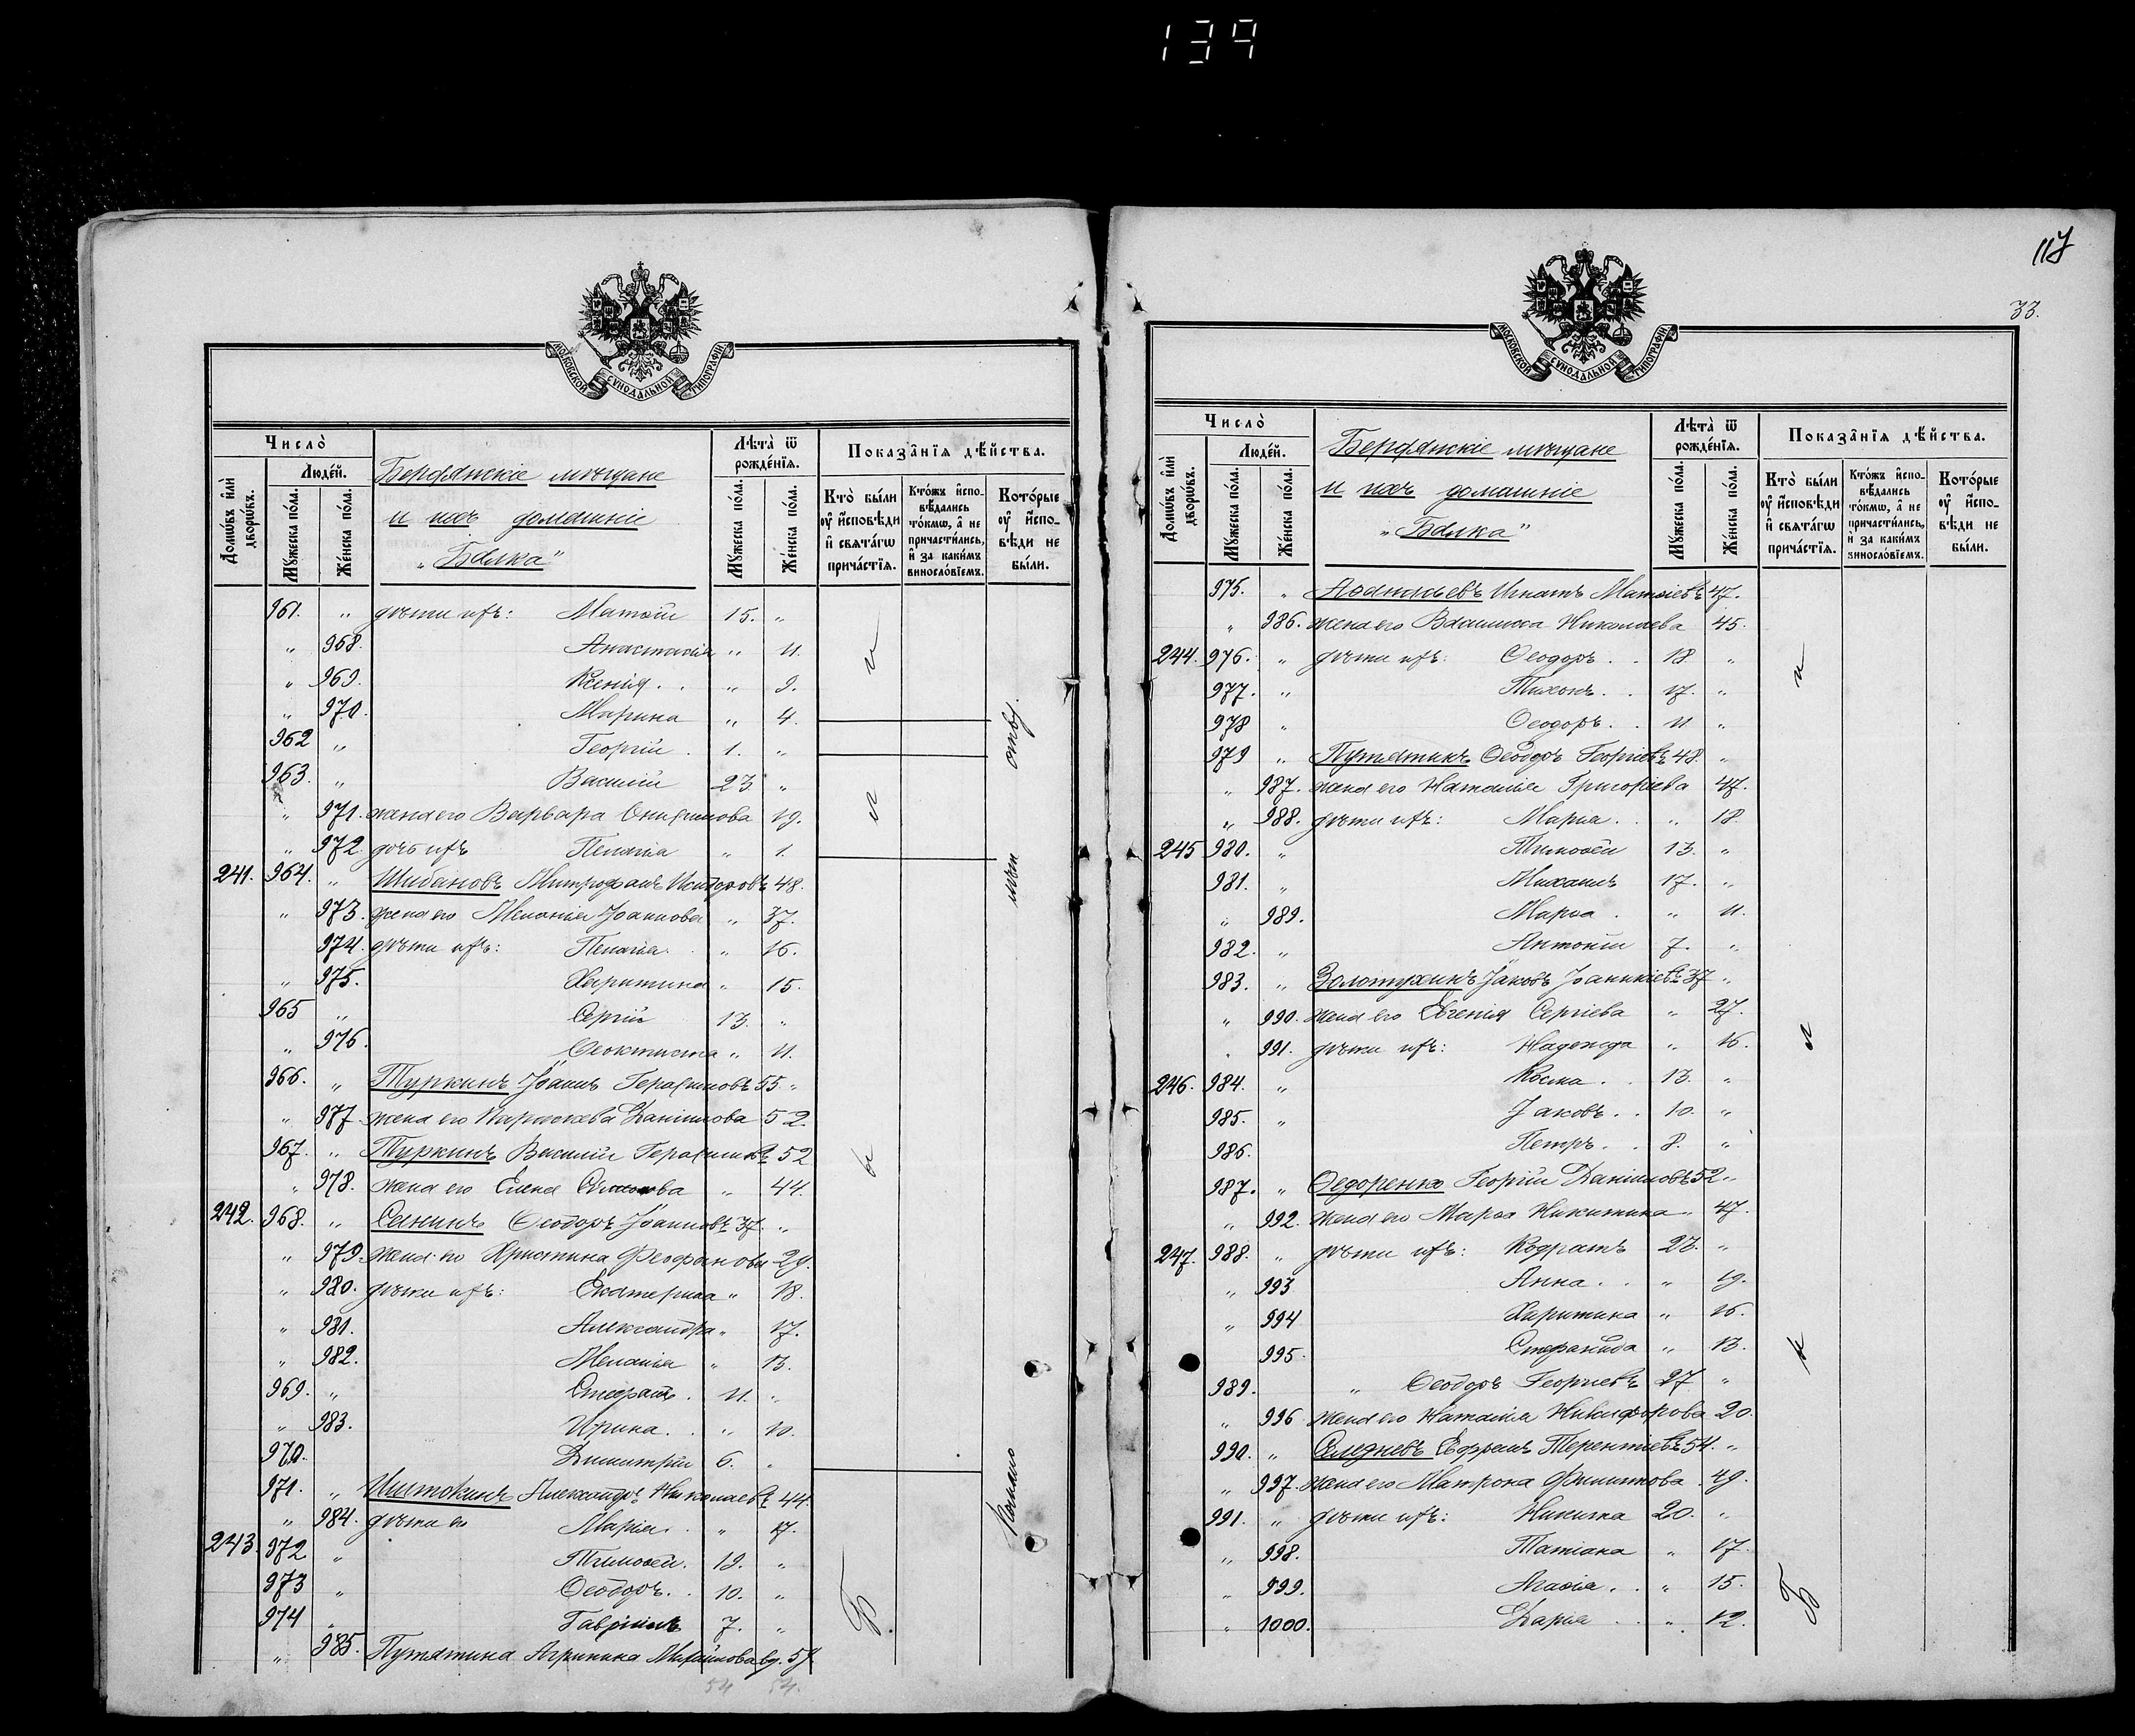 139
МОСКОВСКОЙ СѴНОДАЛЬНОЙ ТИПОГРАФІИ
Число̀
Домѡвъ и҆лѝ дворѡвъ.
Люде́й.
Мꙋжеска по́ла.
Же́нска по́ла.
Бердянскіе мѣщане
и ихъ домашніе
„Балка"
Лѣта̀ ѿ рожде́нїѧ.
Мꙋжеска по́ла.
Же́нска по́ла.
Показа̑нїѧ дѣ́йства.
Кто̀ бы́ли ᲂу҆ и҆́сповѣди и҆ свѧта́гѡ прича́стїѧ.
Кто́жъ и҆спо-вѣ́дались то́кмѡ, а҆ не причасти́лись, и҆ за каки́мъ винослѡ́вїемъ.
Кото́рые ᲂу҆ и҆́спо-вѣди не бы́ли.
961. „ дѣти ихъ: Матѳій 15. „
„ 968. Анастасія „ 11.
„ 969. Ксенія . . „ 9.
„ 970. Марина „ 4.
962 „ Георгій . 1. „
963. „ Василій 23 „
„ 971. жена его Варвара Онисимова 19.
„ 972. дочь ихъ Пелагія „ 1.
241. 964. „ Шибановъ Митрофанъ Исидоровъ 48.
„ 973. жена его Меланія Іоаннова „ 37.
974. дѣти ихъ: Пелагія . „ 16.
„ 975. Харитина „ 15.
965 „ Сергій 13. „
„ 976. Ѳеоктиста „ 11.
966. „ Туркинъ Іоаннъ Герасимовъ 55 „
„ 977. жена его Параскева Даніилова 52.
967. „ Туркинъ Василій Герасимовъ 52
„ 978. жена его Елена „ 44.
242. 968. „ Санинъ Ѳеодоръ Іоанновъ 37. „
„ 979. жена его Христина Феофанова 29.
„ 980. дѣти ихъ: Екатерина „ 18.
„ 981. Александра „ 17.
„ 982. Меланія „ 13.
969. „ Стефанъ . 11. „
„ 983. Ирина . . „ 10.
970. Димитрій 6. „
971. „ Александръ Николаевъ 44.
„ 984. дѣти его Марія . . „ 17.
243. 972 „ Тимоѳей. 19. „
973 „ Ѳеодоръ. . 10. „
974 „ Гавріилъ 7. „
„ 985. Путятина Агрипина Михайлова вд. 57.
54 54.
117
33.
МОСКОВСКОЙ СѴНОДАЛЬНОЙ ТИПОГРАФІИ
Число̀
Домѡвъ и҆лѝ дворѡвъ.
Люде́й.
Мꙋжеска по́ла.
Же́нска по́ла.
Бердянскіе мѣщане
и ихъ домашніе
„Балка"
Лѣта̀ ѿ рожде́нїѧ.
Мꙋжеска по́ла.
Же́нска по́ла.
Показа̑нїѧ дѣ́йства.
Кто̀ бы́ли ᲂу҆ и҆́сповѣди и҆ свѧта́гѡ прича́стїѧ.
Кто́жъ и҆спо-вѣ́дались то́кмѡ, а҆ не причасти́лись, и҆ за каки́мъ винослѡ́вїемъ.
Кото́рые ᲂу҆ и҆́спо-вѣди не бы́ли.
975. „ Игнатъ Матѳіевъ 47.
„ 986. жена его Василиса Николаева 45.
244. 976. „ дѣти ихъ: Ѳеодоръ . . 18 „
977. „ Тихонъ . . 17. „
978 „ Ѳеодоръ . . 11 „
979 „ Путятинъ Ѳеодоръ Георгіевъ 48. „
„ 987. жена его Наталія Григоріева 47.
„ 988. дѣти ихъ: Марія . . „ 18.
245 980. „ Тимоѳей 13. „
981. „ Михаилъ 17. „
„ 989. Марѳа . „ 11.
982. „ Антоній 7. „
983. „ Золотухинъ Іаковъ Іоанникіевъ 37 „
„ 990. жена его Евгенія Сергіева „ 27.
„ 991. дѣти ихъ: Надежда „ 16.
246. 984. „ Косма . . 13. „
985. „ Іаковъ . . 10. „
986. Петръ . . 8. „
987. „ Ѳедоренко Георгій Даніиловъ 52 „
„ 992. жена его Марѳа Никитина „ 47.
247. 988. „ дѣти ихъ: Кодратъ 23. „
„ 993 Анна . . „ 19.
„ 994 Харитина „ 16.
995. Стефанида „ 13.
989. „ Ѳеодоръ Георгіевъ 27 „
„ 996 жена его Наталія Никифорова 20.
990. „ Селезневъ Ефремъ Терентіевъ 54. „
„ 997. жена его Матрона Филиппова . 49.
991. „ дѣти ихъ: Никита 20. „
„ 998. Татіана „ 17.
„ 999. Агаѳія . . „ 15.
„ 1000. Дарія . . „ 12.